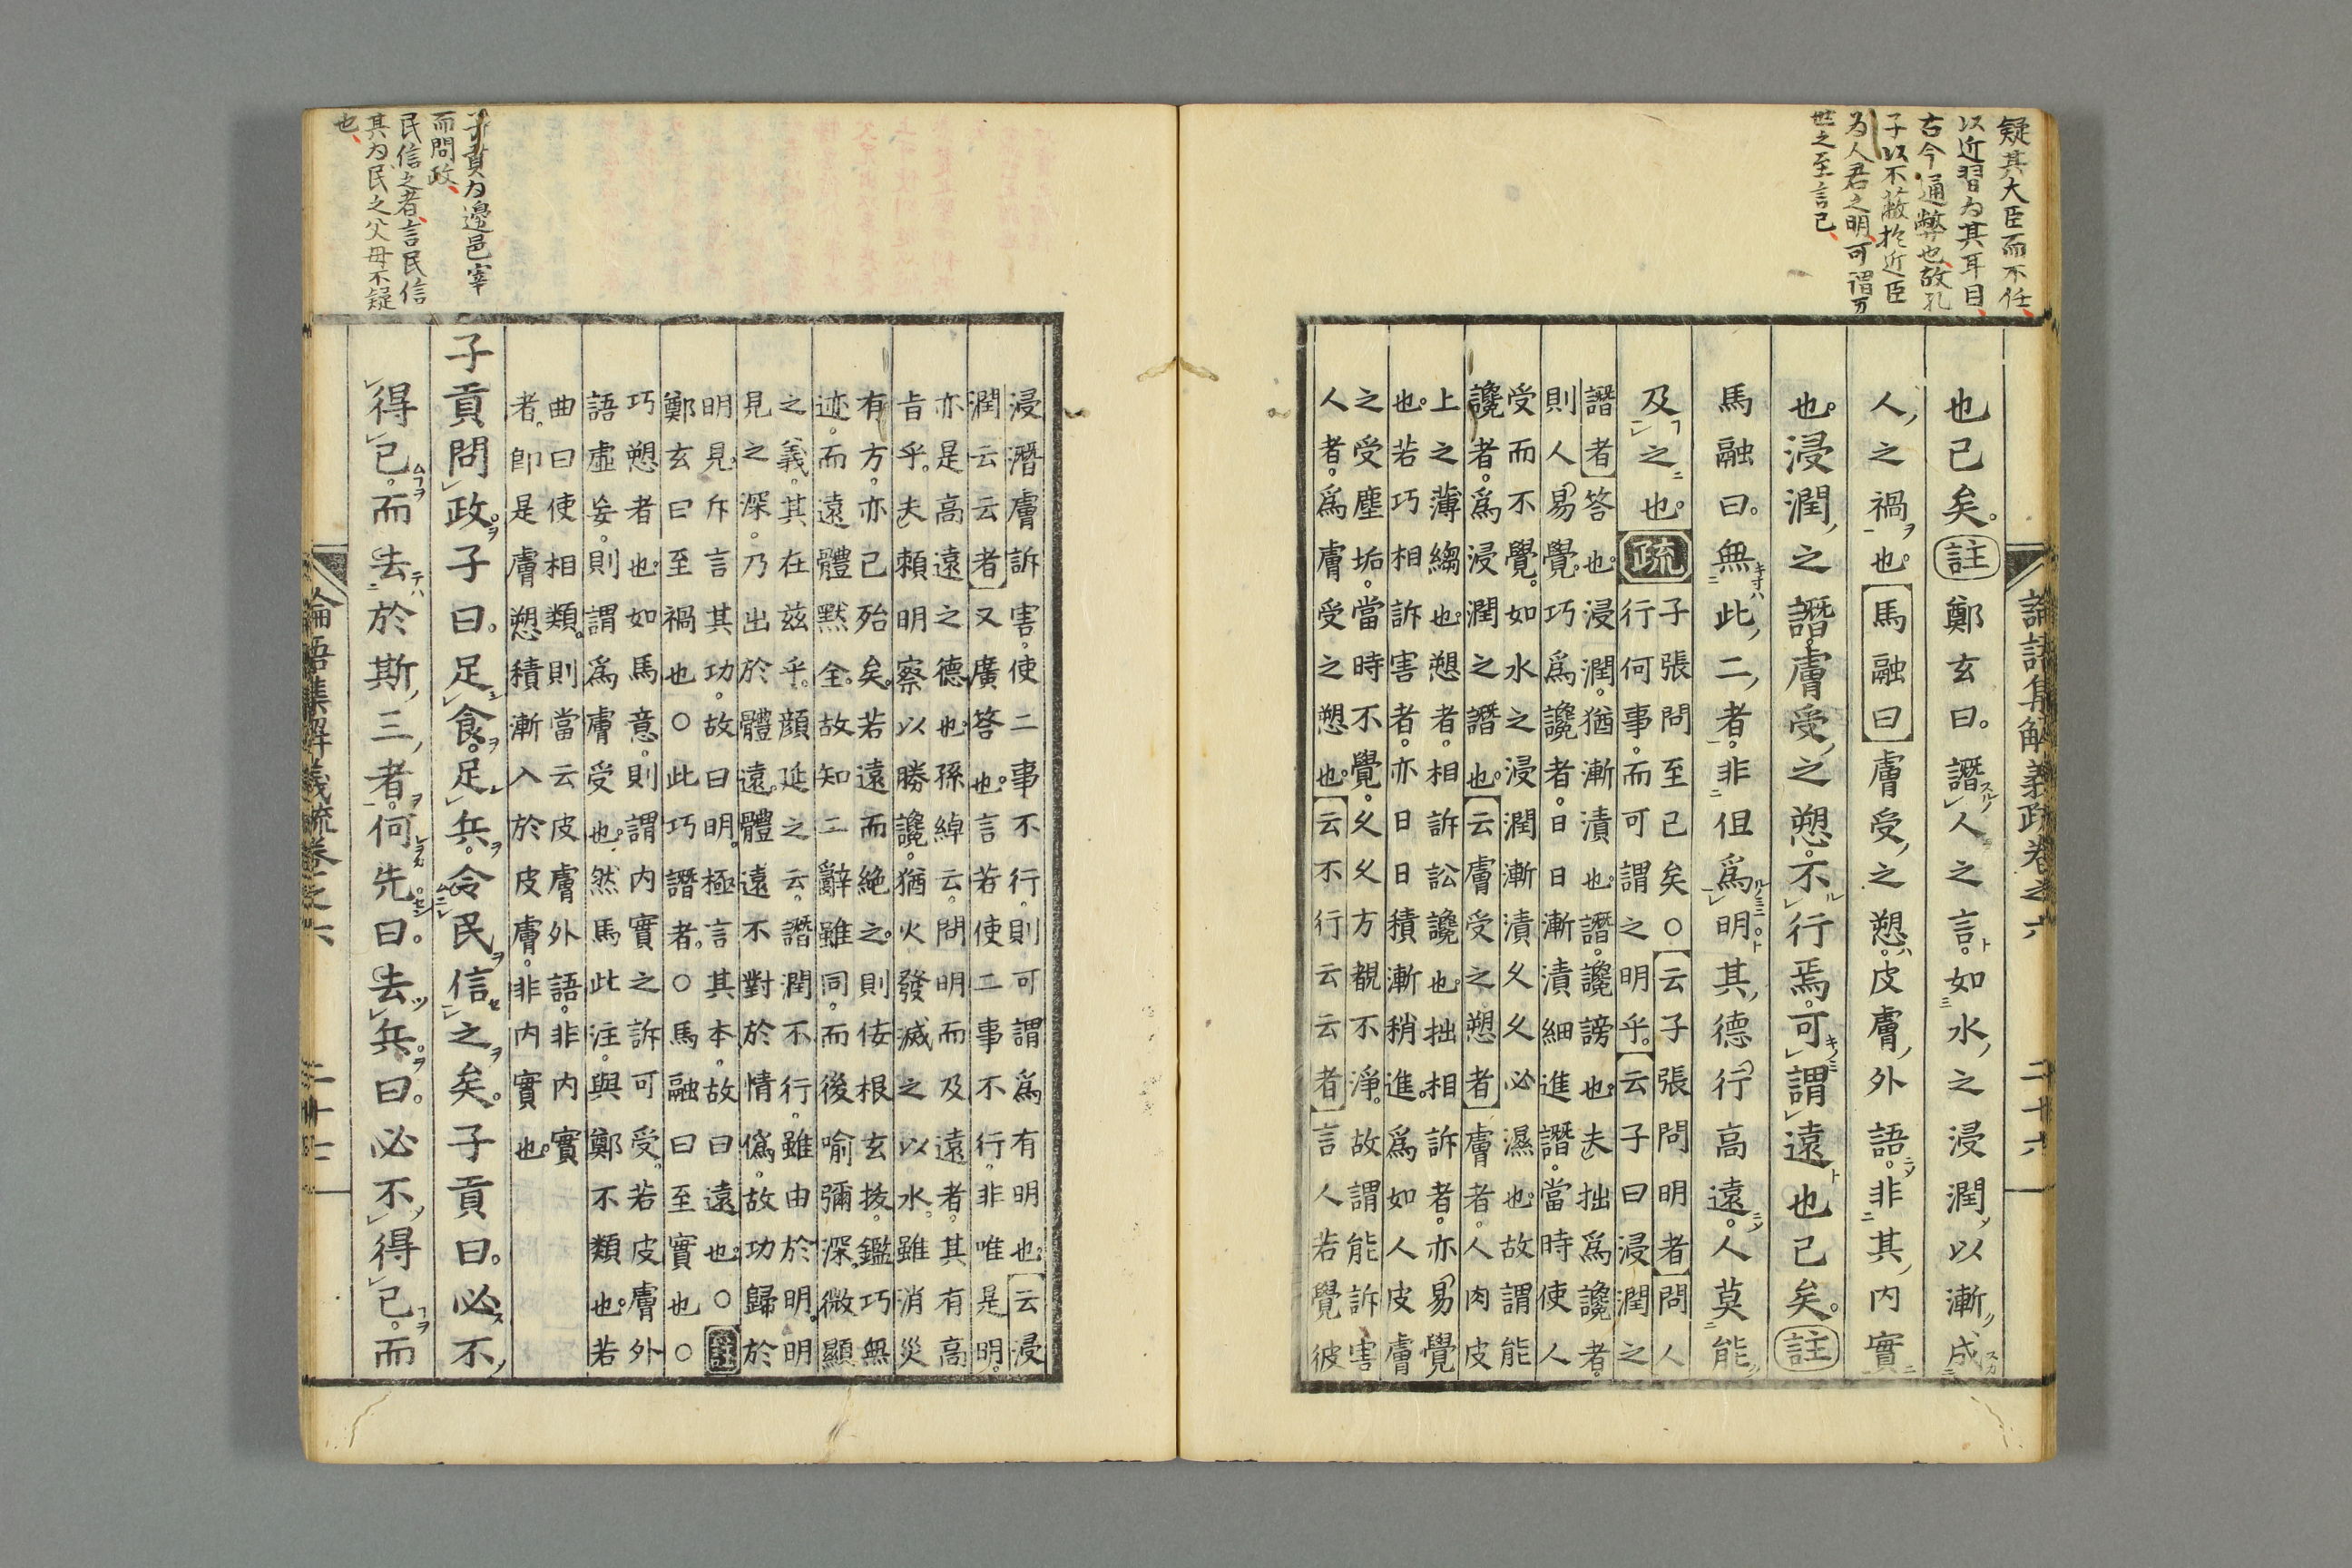 疑其大臣而不任
以近習为其耳目
古今通弊也故孔
子以不蔽於近臣
为人君之明可謂万
世之至言已
論語集解義疏卷之六 二十六
也已矣。註鄭玄曰。譖人之言。如水之浸潤以漸成
人之禍也。馬融曰膚受之愬。皮膚外語。非其内實
也。浸潤之譖。膚受之愬。不行焉。可謂遠也已矣。註
馬融曰。無此二者。非但爲明。其德行高遠。人莫能
及之也。疏
子張問至已矣○云子張問明者問人
行何事。而可謂之明乎。云子曰浸潤之
譖者答也。浸潤。猶漸漬也。譖。讒謗也。夫拙爲讒者。
則人易覺。巧爲讒者。日日漸漬細進譖。當時使人
受而不覺。如水之浸潤漸漬久久必濕也。故謂能
讒者。爲浸潤之譖也。云膚受之愬者膚者。人肉皮
上之薄縐也。愬者。相訴訟讒也。拙相訴者。亦易覺
也。若巧相訴害者。亦日日積漸稍進。爲如人皮膚
之受塵垢。當時不覺。久久方覩不淨。故謂能訴害
人者。爲膚受之愬也。云不行云云者言人若覺彼
子貢为邊邑宰
而問政
民信之者言民信
其为民之父母不疑
也
浸潛膚訴害。使二事不行。則可謂爲有明也。云浸
潤云云者又廣答也。言若使二事不行。非唯是明。
亦是高遠之德也。孫綽云。問明而及遠者。其有高
旨乎。夫賴明察以勝讒。猶火發滅之以水。雖消災
有方。亦已殆矣。若遠而絶之。則佞根玄拔。鑑巧無
迹。而遠體默全。故知二辭雖同。而後喻彌深。微顯
之義。其在茲乎。顏延之云。譖潤不行。雖由於明。明
見之深。乃出於體遠。體遠不對於情僞。故功歸於
明見。斥言其功。故曰明。極言其本。故曰遠也。○註
鄭玄曰至禍也○此巧譖者。○馬融曰至實也○
巧愬者也。如馬意。則謂内實之訴可受。若皮膚外
語虛妄。則謂爲膚受也。然馬此注。與鄭不類也。若
曲曰使相類。則當云皮膚外語。非内實
者。即是膚愬積漸入於皮膚。非内實也。
子貢問政。子曰。足食。足兵。令民信之矣。子貢曰。必不
得已。而去於斯三者。何先。曰。去兵。曰。必不得已。而
論語集解義疏卷之六 二十七